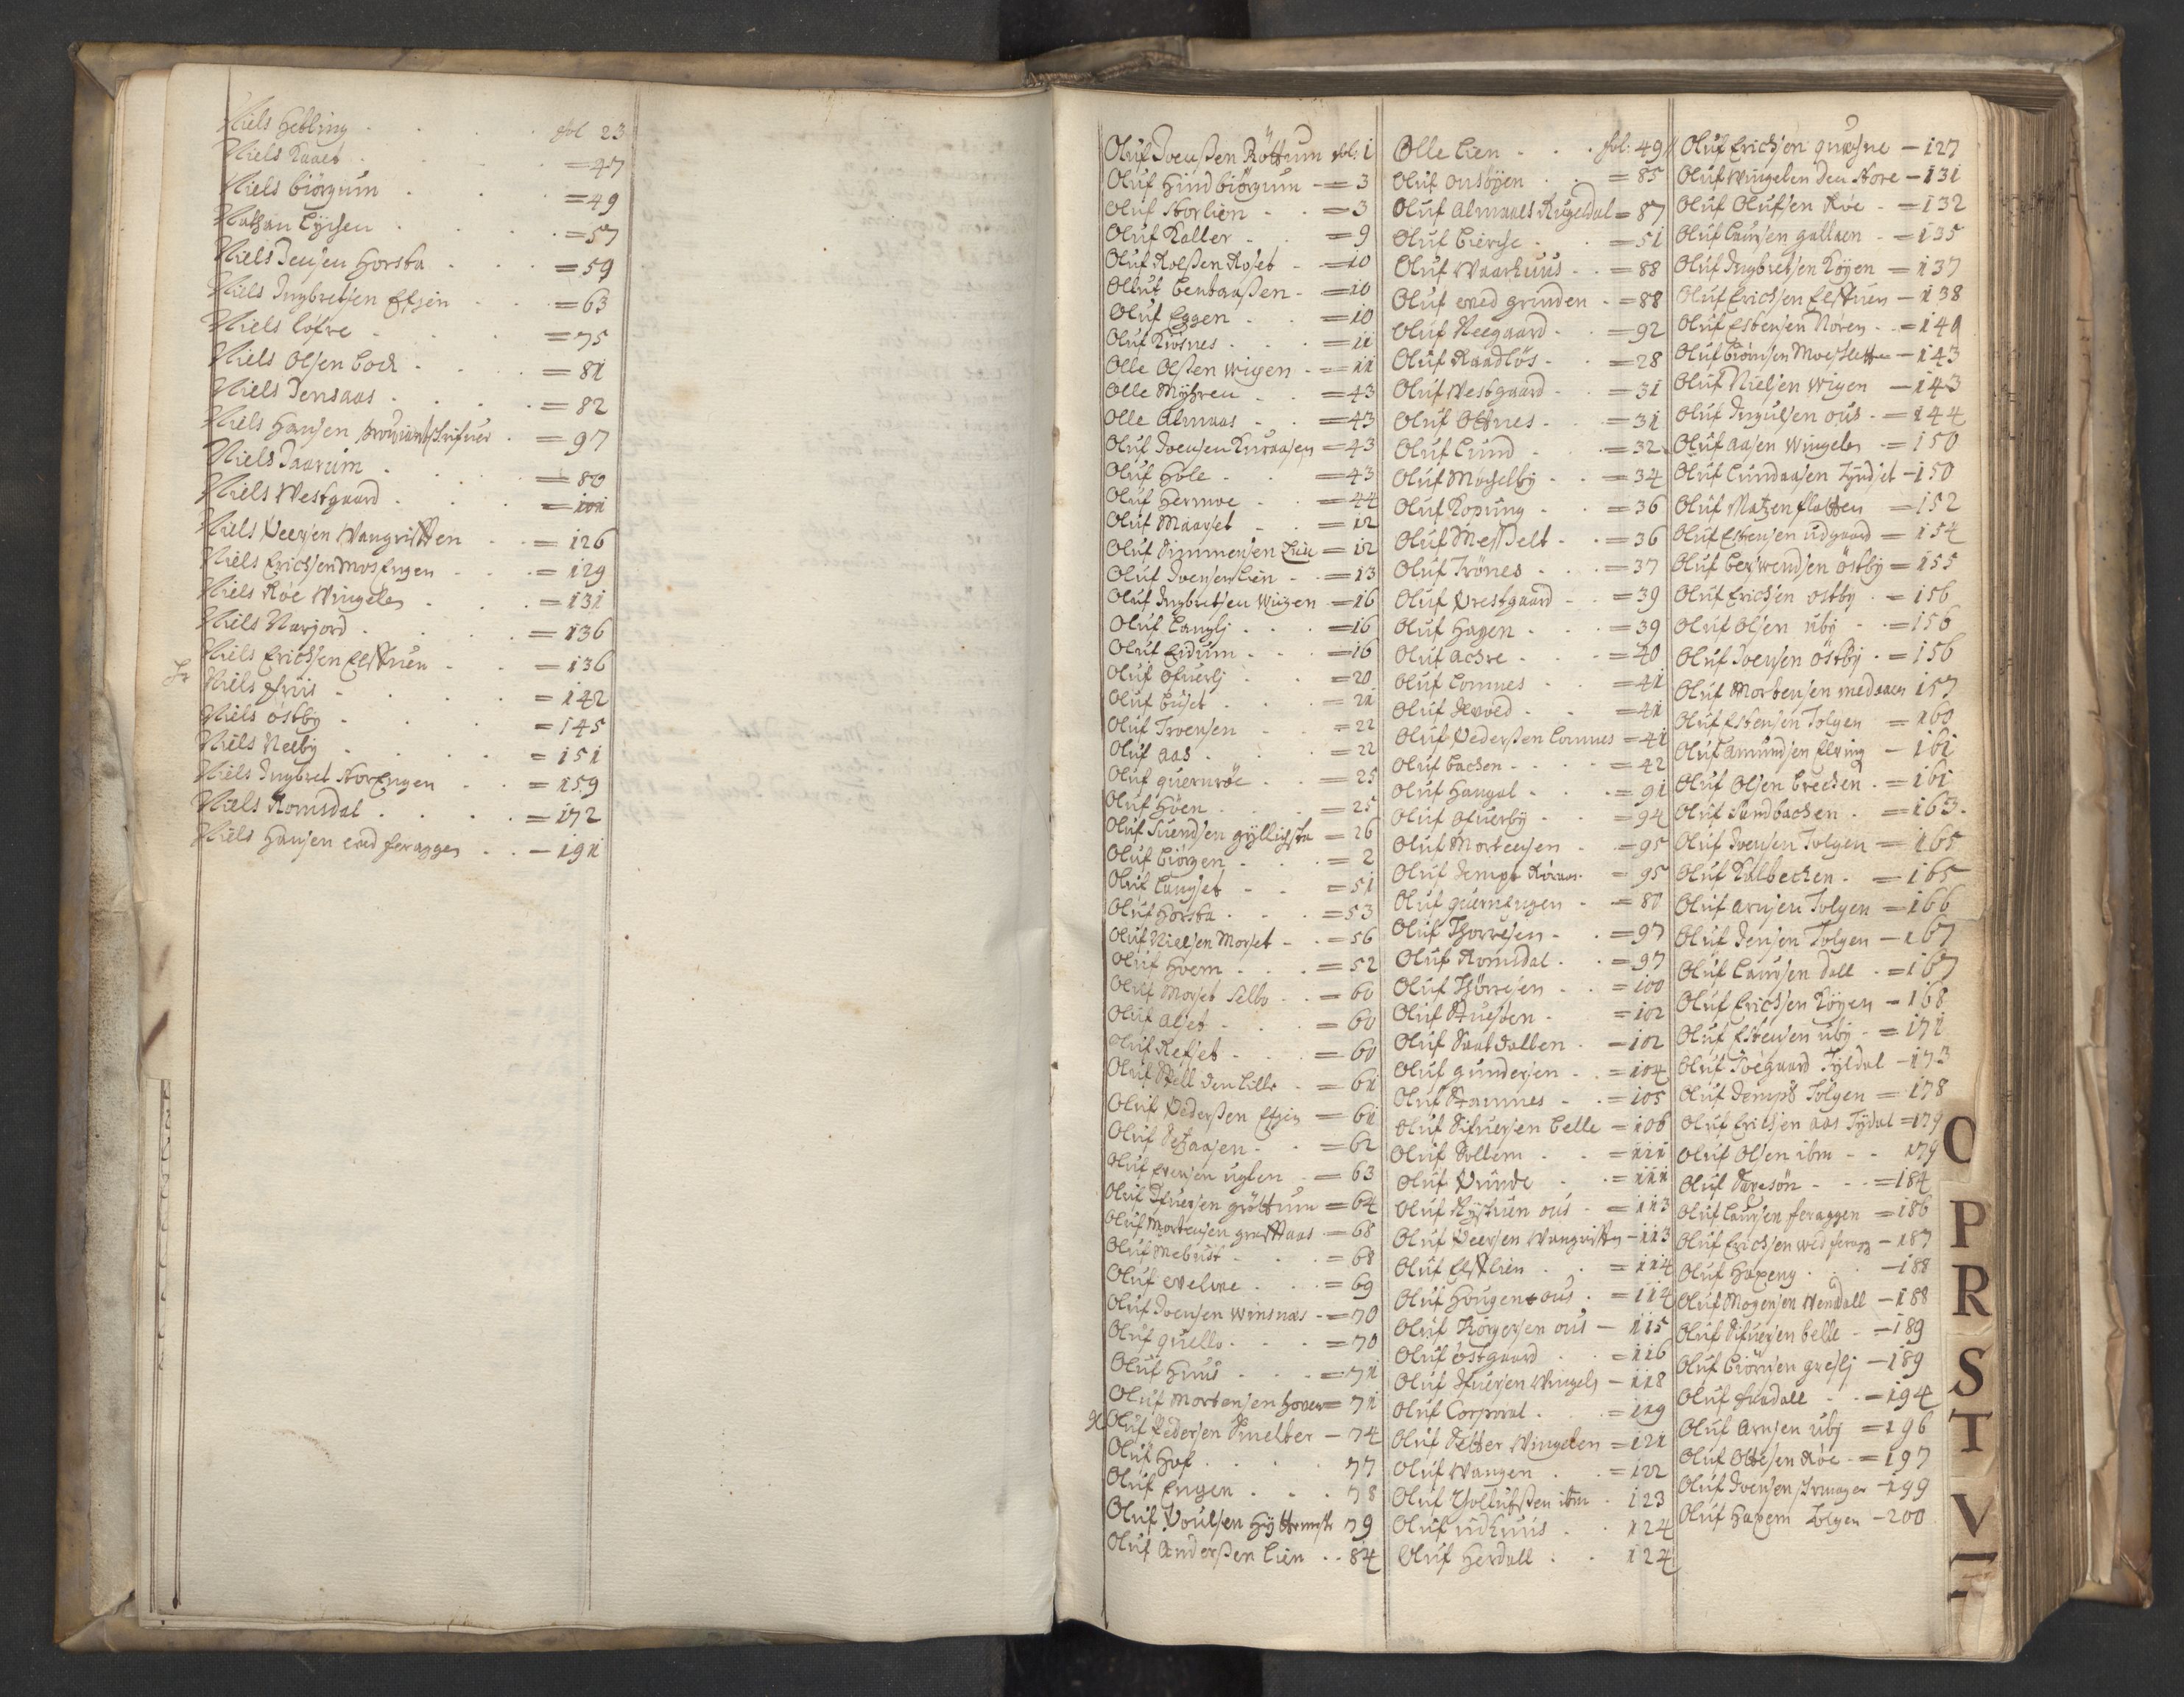 Niels Hebling . . . . fol 23
Niels Kaaet . . . = 47
Niels Biörgum . . . = 49
Nathan Eÿlsen . . . = 57
Niels Jensen Horsta . . . = 59
Niels Ingbretsen Essin . . = 63
Niels löfre . . . = 75
Niels Olsen Bock . . . = 81
Niels Jensaas . . . = 82
Niels Hansen Proviantschrifuer . = 97
Niels Daarum . . . = 80
Niels Westgaard . . . = 101
Niels Peersen Wangrøften . . = 126
Niels Erichsen Mos Engen . . = 129
Niels Röe Wingelen . . . = 131
Niels Narjord . . . = 136
Niels Erichsen Elstuen . . = 136
Niels friis . . . = 142
Niels östby . . . = 145
Niels Neeby . . . = 151
Niels Ingbret Storengen . . = 159
Niels Romsdal . . . . = 172
Niels Hansen ved feraggen . . — 191
Oluf Joensen Röttum fol: 1
Oluf Hind Biörgum — = 3
Oluf Storlien . . = 3
Oluf Kaller . . = 9
Oluf Rolsen Roset — = 10
Oluf Bentaasen — = 10
Oluf Eggen . . = 10
Oluf Kirsnes . . . = 11
Olle Olsen Wigen . = 11
Olle Mÿhren . . = 43
Olle Almaas . . = 43
Oluf Joensen Kuraasen = 43
Oluf Hole . . = 43
Oluf Hermoe . . = 44
Oluf Maarset . . = 12
Oluf Simmensen Lien = 12
Oluf Joensen Lien . . = 13
Oluf Ingbretsen Wigen = 16
Oluf Langli . . . = 16
Oluf Eidum . . . = 16
Oluf öfuerli . . = 20
Oluf Buset . . . = 21
Oluf Iversen . . = 22
Oluf Aas . . . = 22
Oluf Quernröe . . = 25
Oluf Höen . . . = 25
Oluf Suendsen = 26
Oluf Biörgen . . . = 2
Oluf Langset . . = 51
Oluf Horsta . . . = 53
Oluf Nielsen Morset . . = 56
Oluf Hoem . . . = 52
Oluf Morset Selbo . . = 60
Oluf Alset . . . = 60
Oluf Refset . . . = 60
Oluf Stell den Lille . = 61
Oluf Pedersen Essin = 61
Oluf Setaasen . . = 62
Oluf Evensen uglen . = 63
Oluf Ifuersen gröttum = 64
Oluf Mortensen = 68
Oluf Mebust . . . = 68
Oluf evelme . . . = 69
Oluf Joensen Winsnæs . = 70
Oluf Quello . . . = 70
Oluf Huus . . . = 71
Oluf Mortensen Hoven = 71
Oluf Pedersen Smelter — 74
Oluf Hof . . . . 77
Oluf Engen . . . 78
Oluf Poulsen Hÿttemestr 79
Oluf Andersen Lien . . 84
Olle Lien . . . fol: 49
Oluf Ousöyen . . = 85
Oluf Almaaes Rugeldal = 87
Oluf Bierche . . = 51
Oluf Waarhuus . . = 88
Oluf ved grinden . = 88
Oluf Neegaard . . = 92
Oluf Raadlös . . = 28
Oluf Westgaard . . = 31
Oluf Ottnes . . . = 31
Oluf Lund . . . = 32
Oluf Moeselby . . = 34
Oluf Kopung . . = 36
Oluf Messelt . . = 36
Oluf Trönes . . . = 37
Oluf Prestgaard . . = 39
Oluf Hagen . . . = 39
Oluf Achre . . . = 40
Oluf Lomnes . . = 41
Oluf . . = 41
Oluf Pedersen Lomnes = 41
Oluf Bachen . . . . = 42
Oluf Haugal . . . = 91
Oluf öfuerby . . = 94
Oluf Mortensen . . = 95
Oluf Jemps Röraas . = 95
Oluf Quernengen . . = 80
Oluf Thorresen . . = 97
Oluf Romsdal . . = 97
Oluf Thörresen . . = 100
Oluf Stuesten . . = 102
Oluf Saatdallen . = 102
Oluf Gundersen . . = 104
Oluf Stamnes . . = 105
Oluf Sifuersen Belle = 106
Oluf Soltem . . = 111
Oluf Punde . . = 111
Oluf Rÿstuen ous . = 113
Oluf Peersen Wangrøften — 113
Oluf Elstlien . . = 114
Oluf Hougen ous . = 114
Oluf Torgersen ous — 115
Oluf östgaard . . = 116
Oluf Ifuersen Wingeln — 118
Oluf Corporal . . = 119
Oluf Setter Wingelen = 121
Oluf Wangen . . = 122
Oluf Thollufsen ibm . 123
Oluf udhuus . . 124
Oluf Herdall . . 124
Oluf Erichsen — 127
Oluf Wingelen den Store — 131
Oluf Olufsen Röe . = 132
Oluf Laursen gallaen . = 135
Oluf Ingbretsen Köyen = 137
Oluf Erichsen Elstuen — 138
Oluf Estensen Nören . . = 140
Oluf Biörnsen Moesletten — 143
Oluf Nielsen Wigen — 143
Oluf Ingulsen ous . = 144
Oluf Aasen Wingeln . = 150
Oluf Lundaasen Tyndset — 150
Oluf Matzen flatten = 152
Oluf Estensen udgaard = 154
Oluf Bersvendsen östby = 155
Oluf Erichsen östby . = 156
Oluf Olsen uby . . = 156
Oluf Joensen östby . = 156
Oluf Mortensen medaaen 157
Oluf Estensen Tolgen = 160
Oluf Amundsen Elving — 161
Oluf Olsen Brechen . = 161
Oluf Sandbachen . = 163
Oluf Joensen Tolgen = 165
Oluf Kalbechen . = 165
Oluf Arnsen Tolgen = 166
Oluf Jensen Tolgen — 167
Oluf Laursen Dall . = 167
Oluf Erichsen Köyen — 168
Oluf Estensen uby . = 171
Oluf Toegaard Tyldal — 173
Oluf Jemps Tolgen = 178
Oluf Erichsen Aas Tÿdal = 179
Oluf Olsen ibm . . 179
Oluf Saresön . . . = 184
Oluf Laursen feraggen = 186
Oluf Erichsen ved feragg — 187
Oluf Haxeng . . . — 188
Oluf Mogensen Wendall — 188
Oluf Sifuersen belle . — 189
Oluf Biörnsen gresli — 189
Oluf fuadall . . = 194
Oluf Arnsen uby = 196
Oluf Ottesen Röe . = 197
Oluf Joensen — 199
Oluf Haxem Tolgen — 200
O
P
R
S
T
V